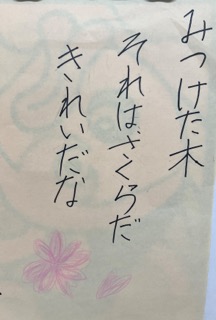 みつけた木
それは、さくらだ
きれいだな